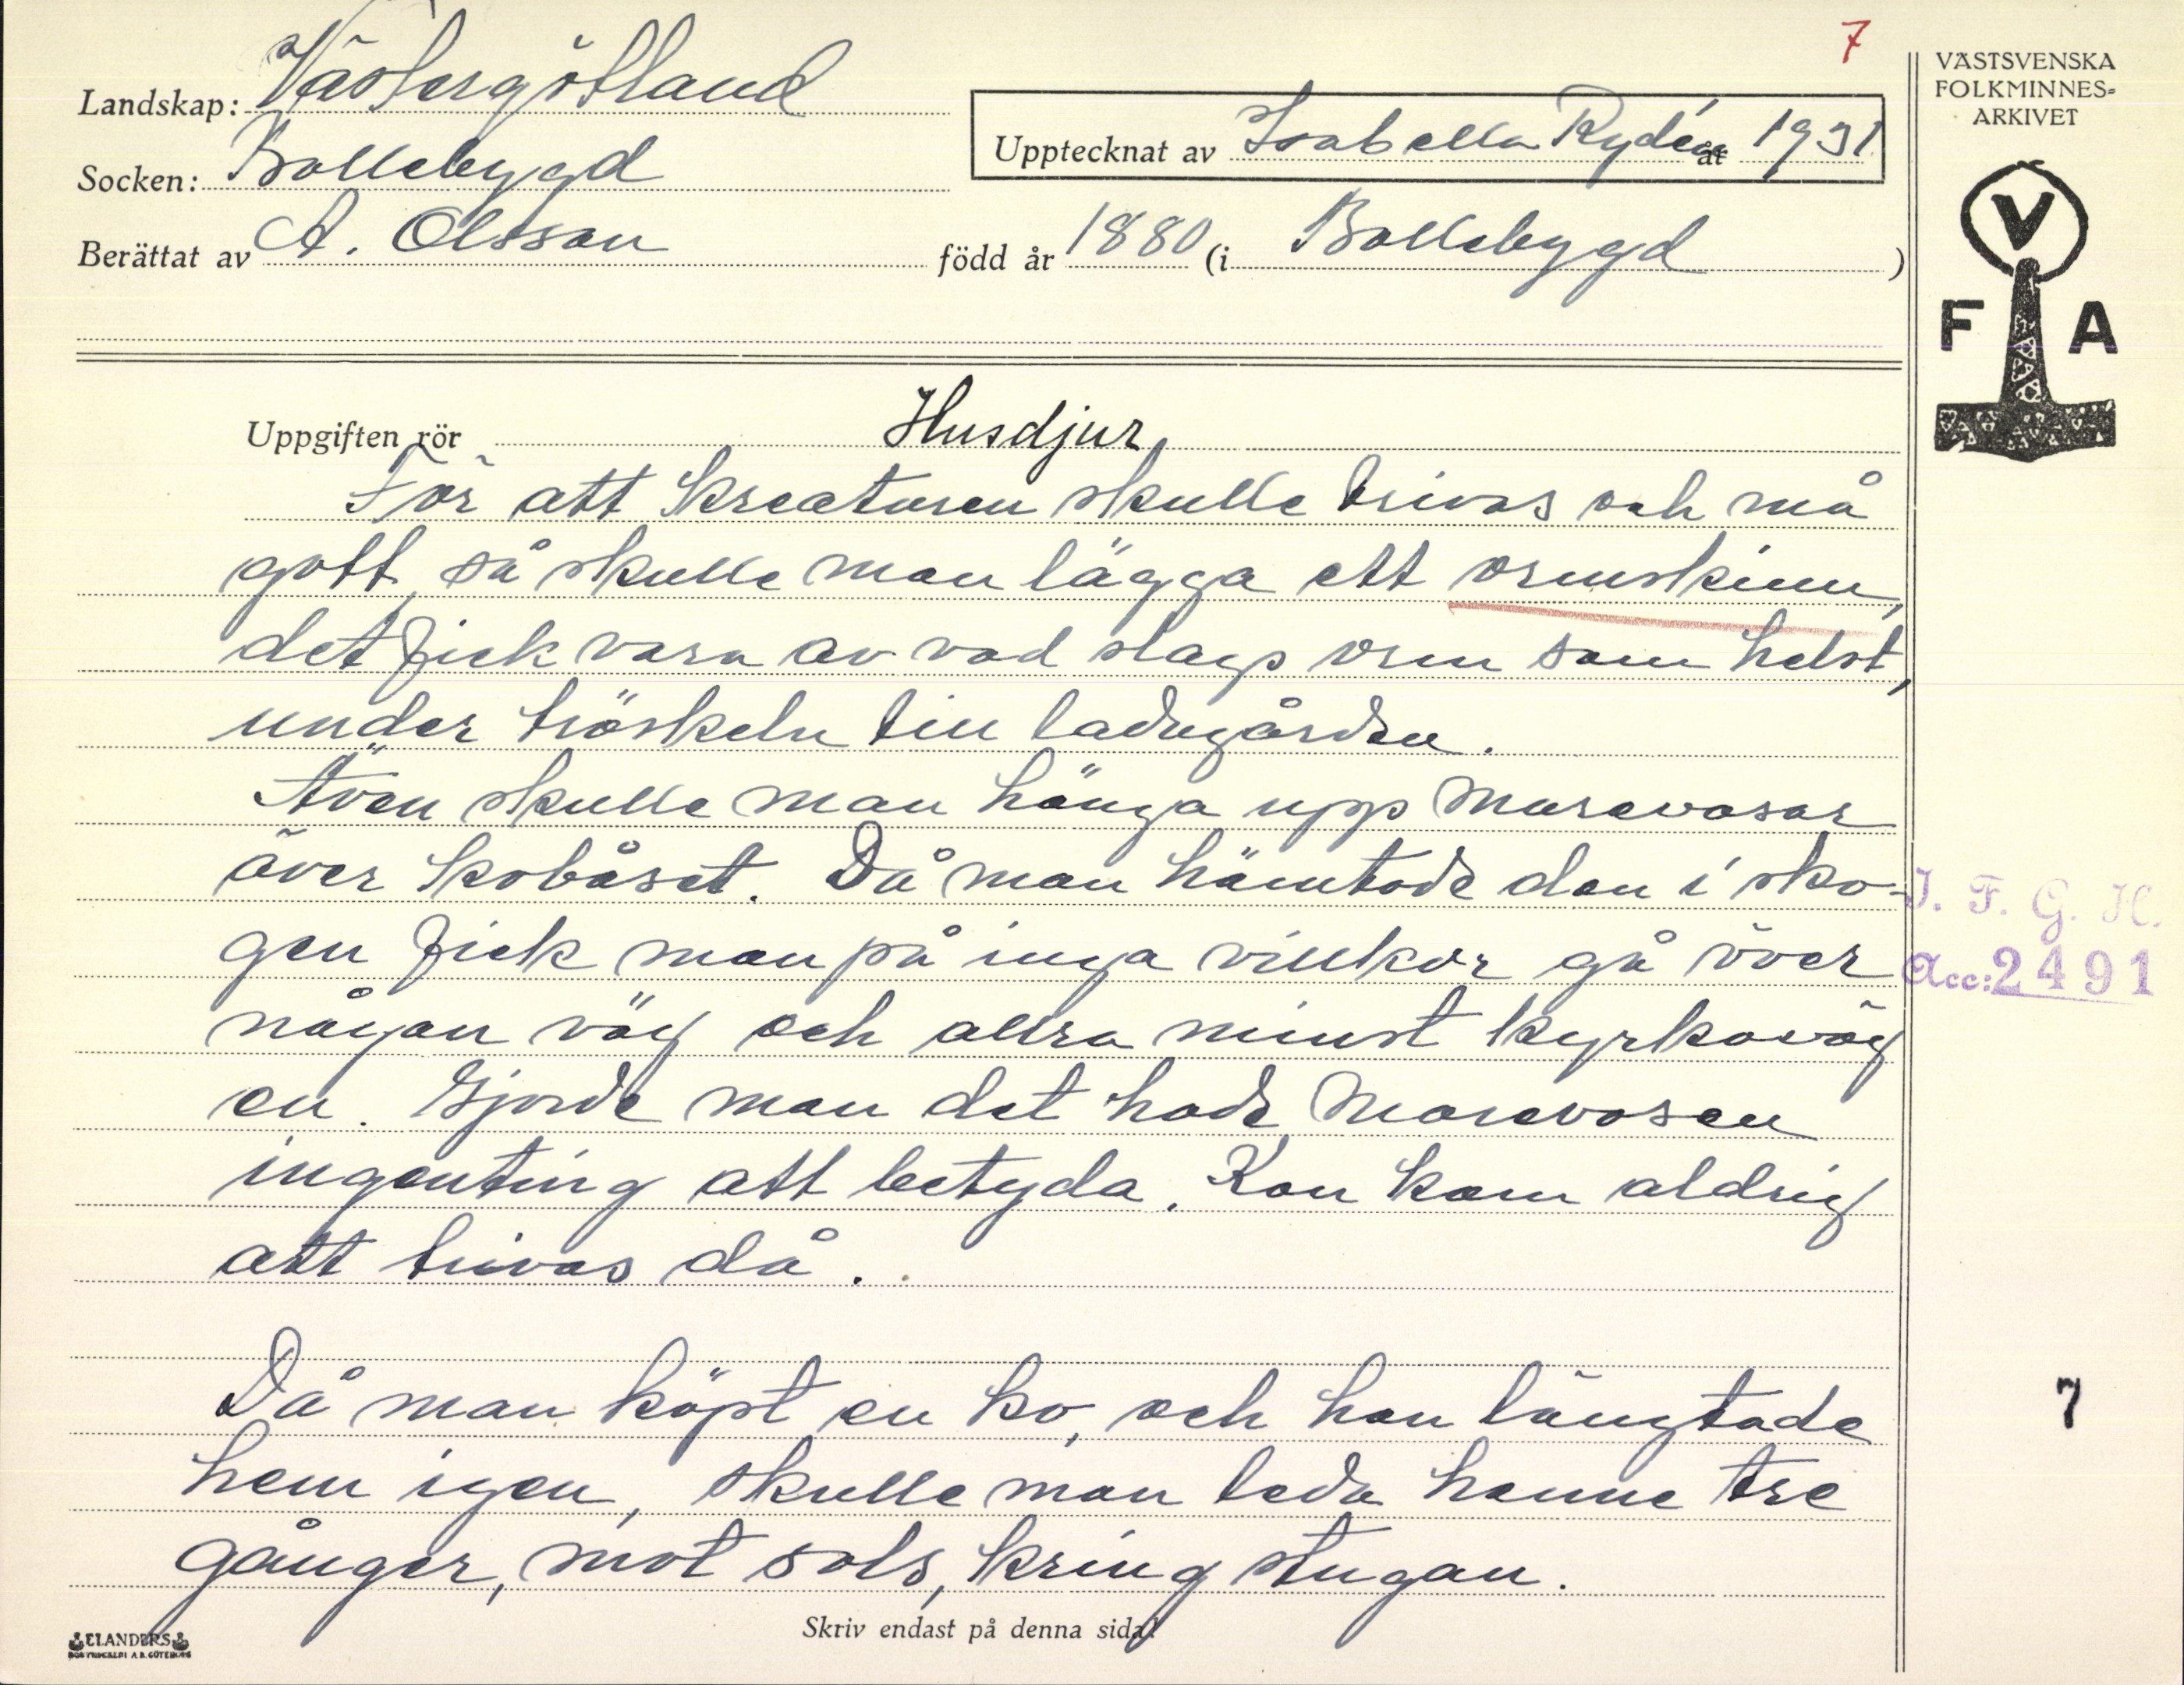 7
VÄSTSVENSKA
FOLKMINNES=
ARKIVET
Landskap: Västergötland
Socken: Bollebygd
Upptecknat av Isabella Rydén år 1931
Berättat av A. Olsson född år 1880 (i Bollebygd )
V
F A
Uppgiften rör Husdjur
För att kreaturen skulle trivas och må
gott, så skulle man lägga ett ormskinn,
det fick vara av vad slags orm som helst,
under tröskeln till ladugården.
Även skulle man hänga upp marevasar
över kobåset. Då man hämtade den i sko-
gen fick man på inga villkor gå över
någon väg och allra minst kyrkoväg
en. Gjorde man det hade marevasen
ingenting att betyda. Kon kom aldrig
att trivas då.
J. F. G. H.
Acc: 2491
Då man köpt en ko, och hon längtade
hem igen, skulle man leda henne tre
gånger, mot sols, kring stugan.
7
Skriv endast på denna sida!
ELANDERS
BOKTRYCKERI A.B. GÖTEBORG